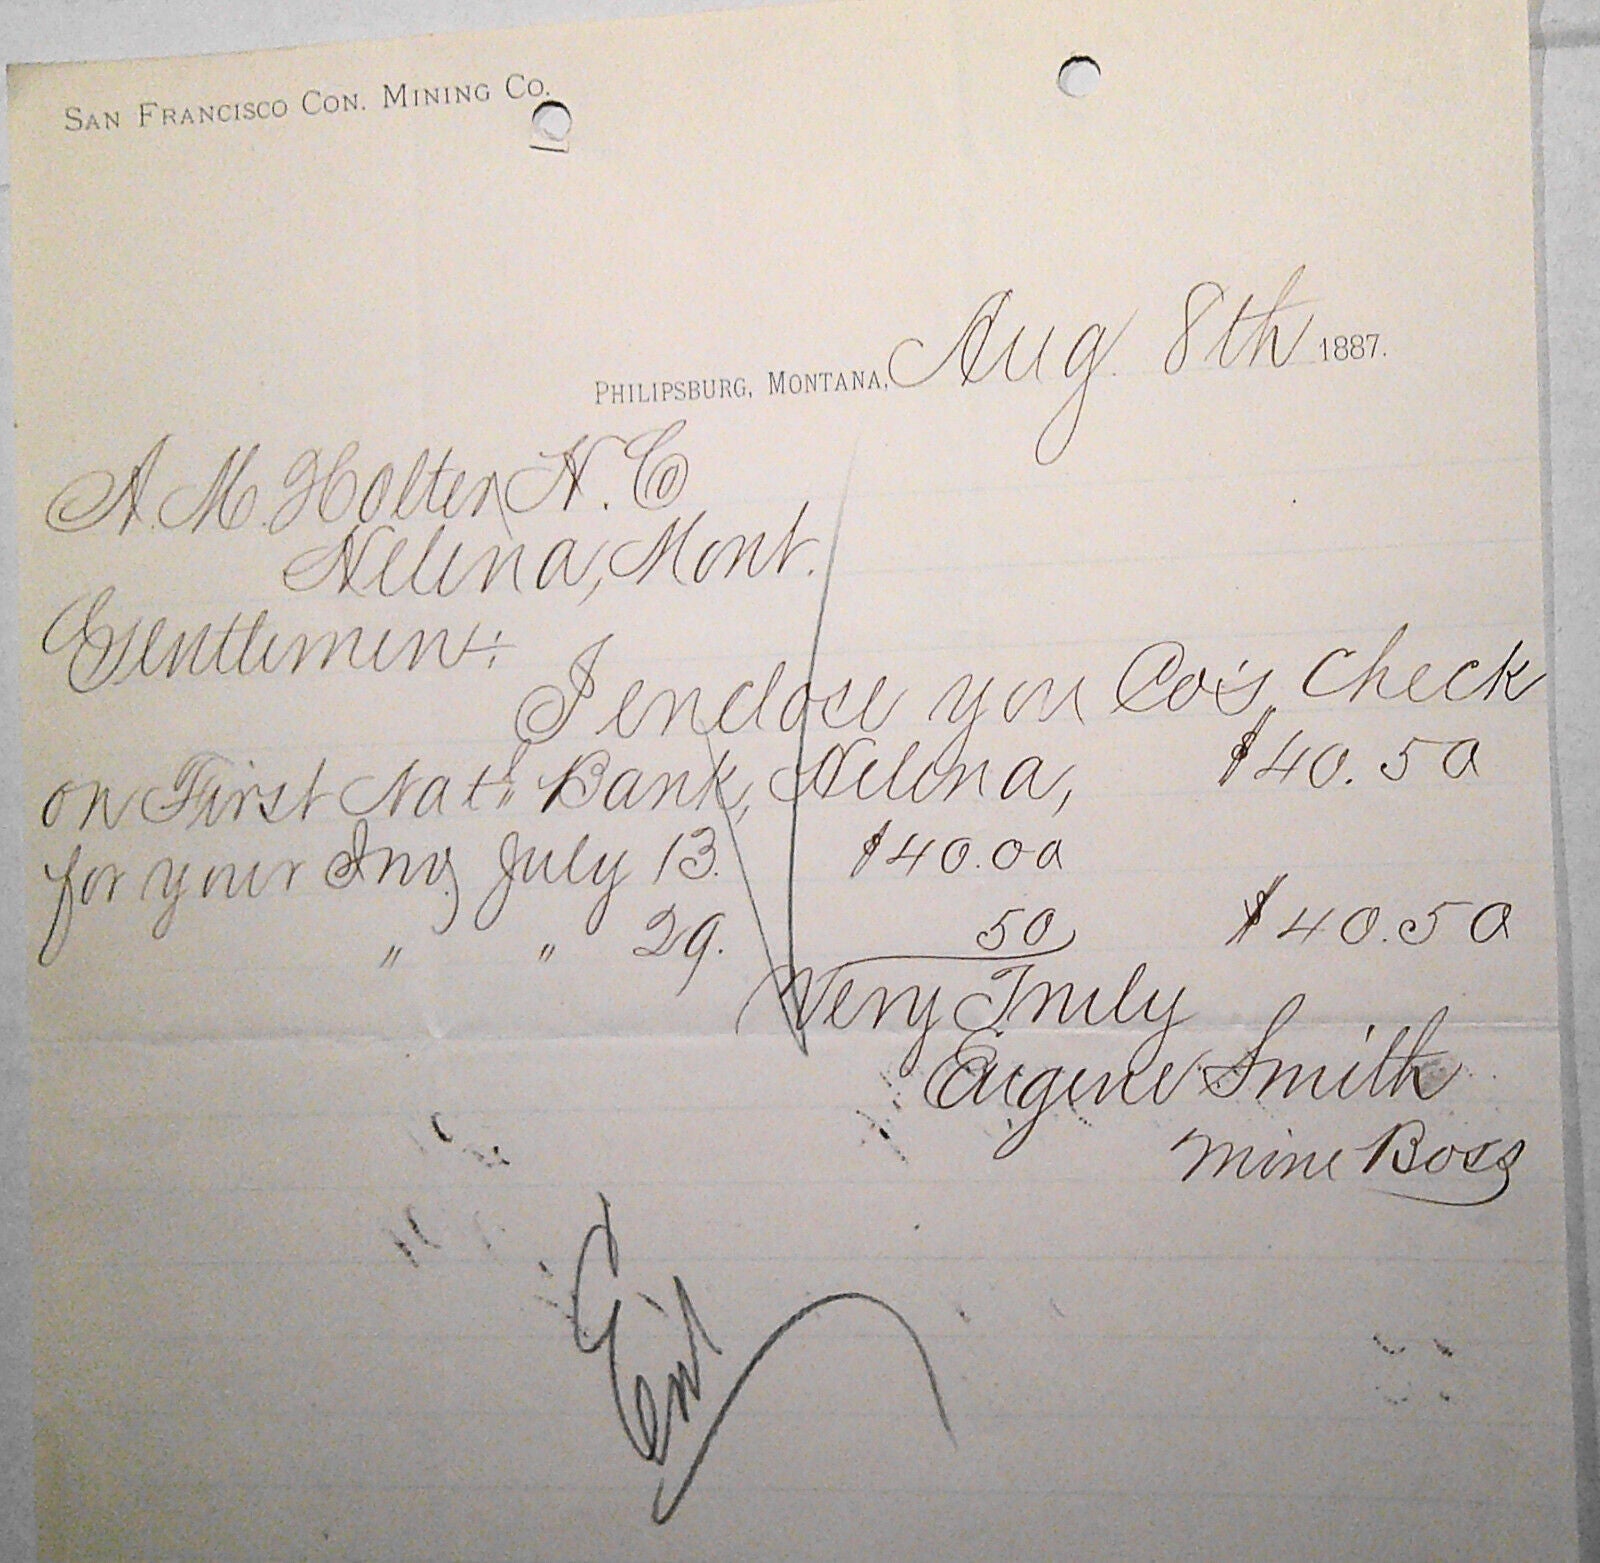 San Francisco Con. Mining Co.
Philipsburg, Montana, Aug. 8th 1887.
A. M. Holter H. Co
Helena, Mont.
Gentlemen:
I enclose you Co's, Check
on First Nat'l Bank, Helena, $40.50
for your Inv, July 13. $40.00
" " 29. 50 $40.50
Very Truly
Eugene Smith
Mine Boss
Ent